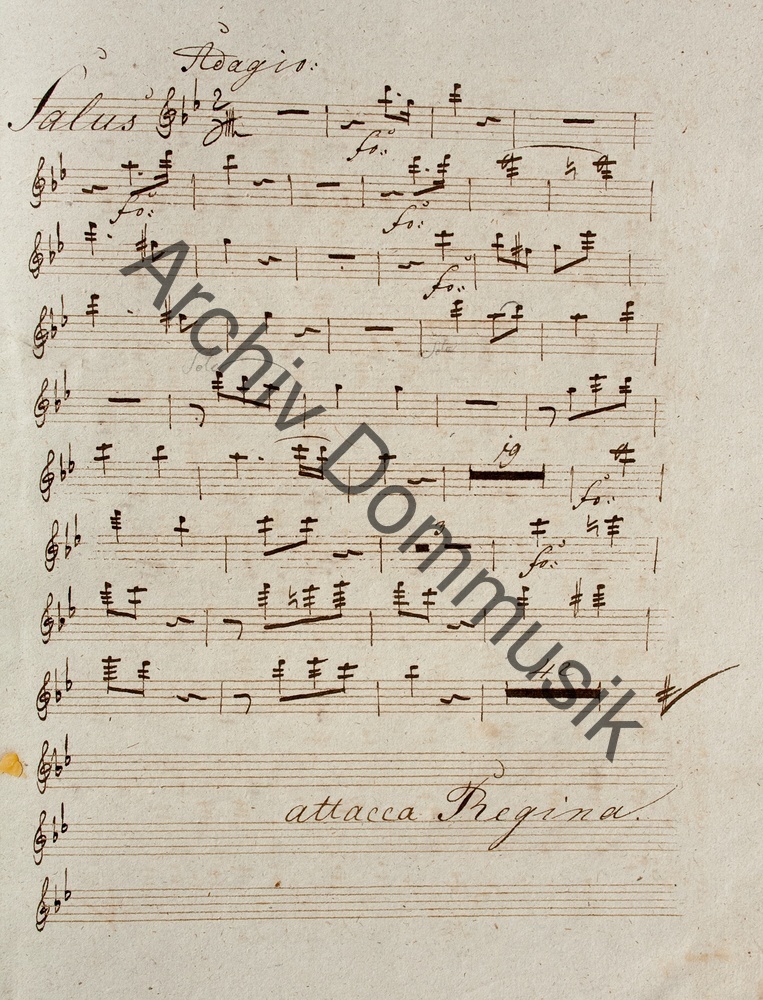 Adagio:
Salus 2
fo:
fo: fo:
fo:
Solo Solo
19
fo:
fo:
4
attacca Regina.
Archiv Dommusik